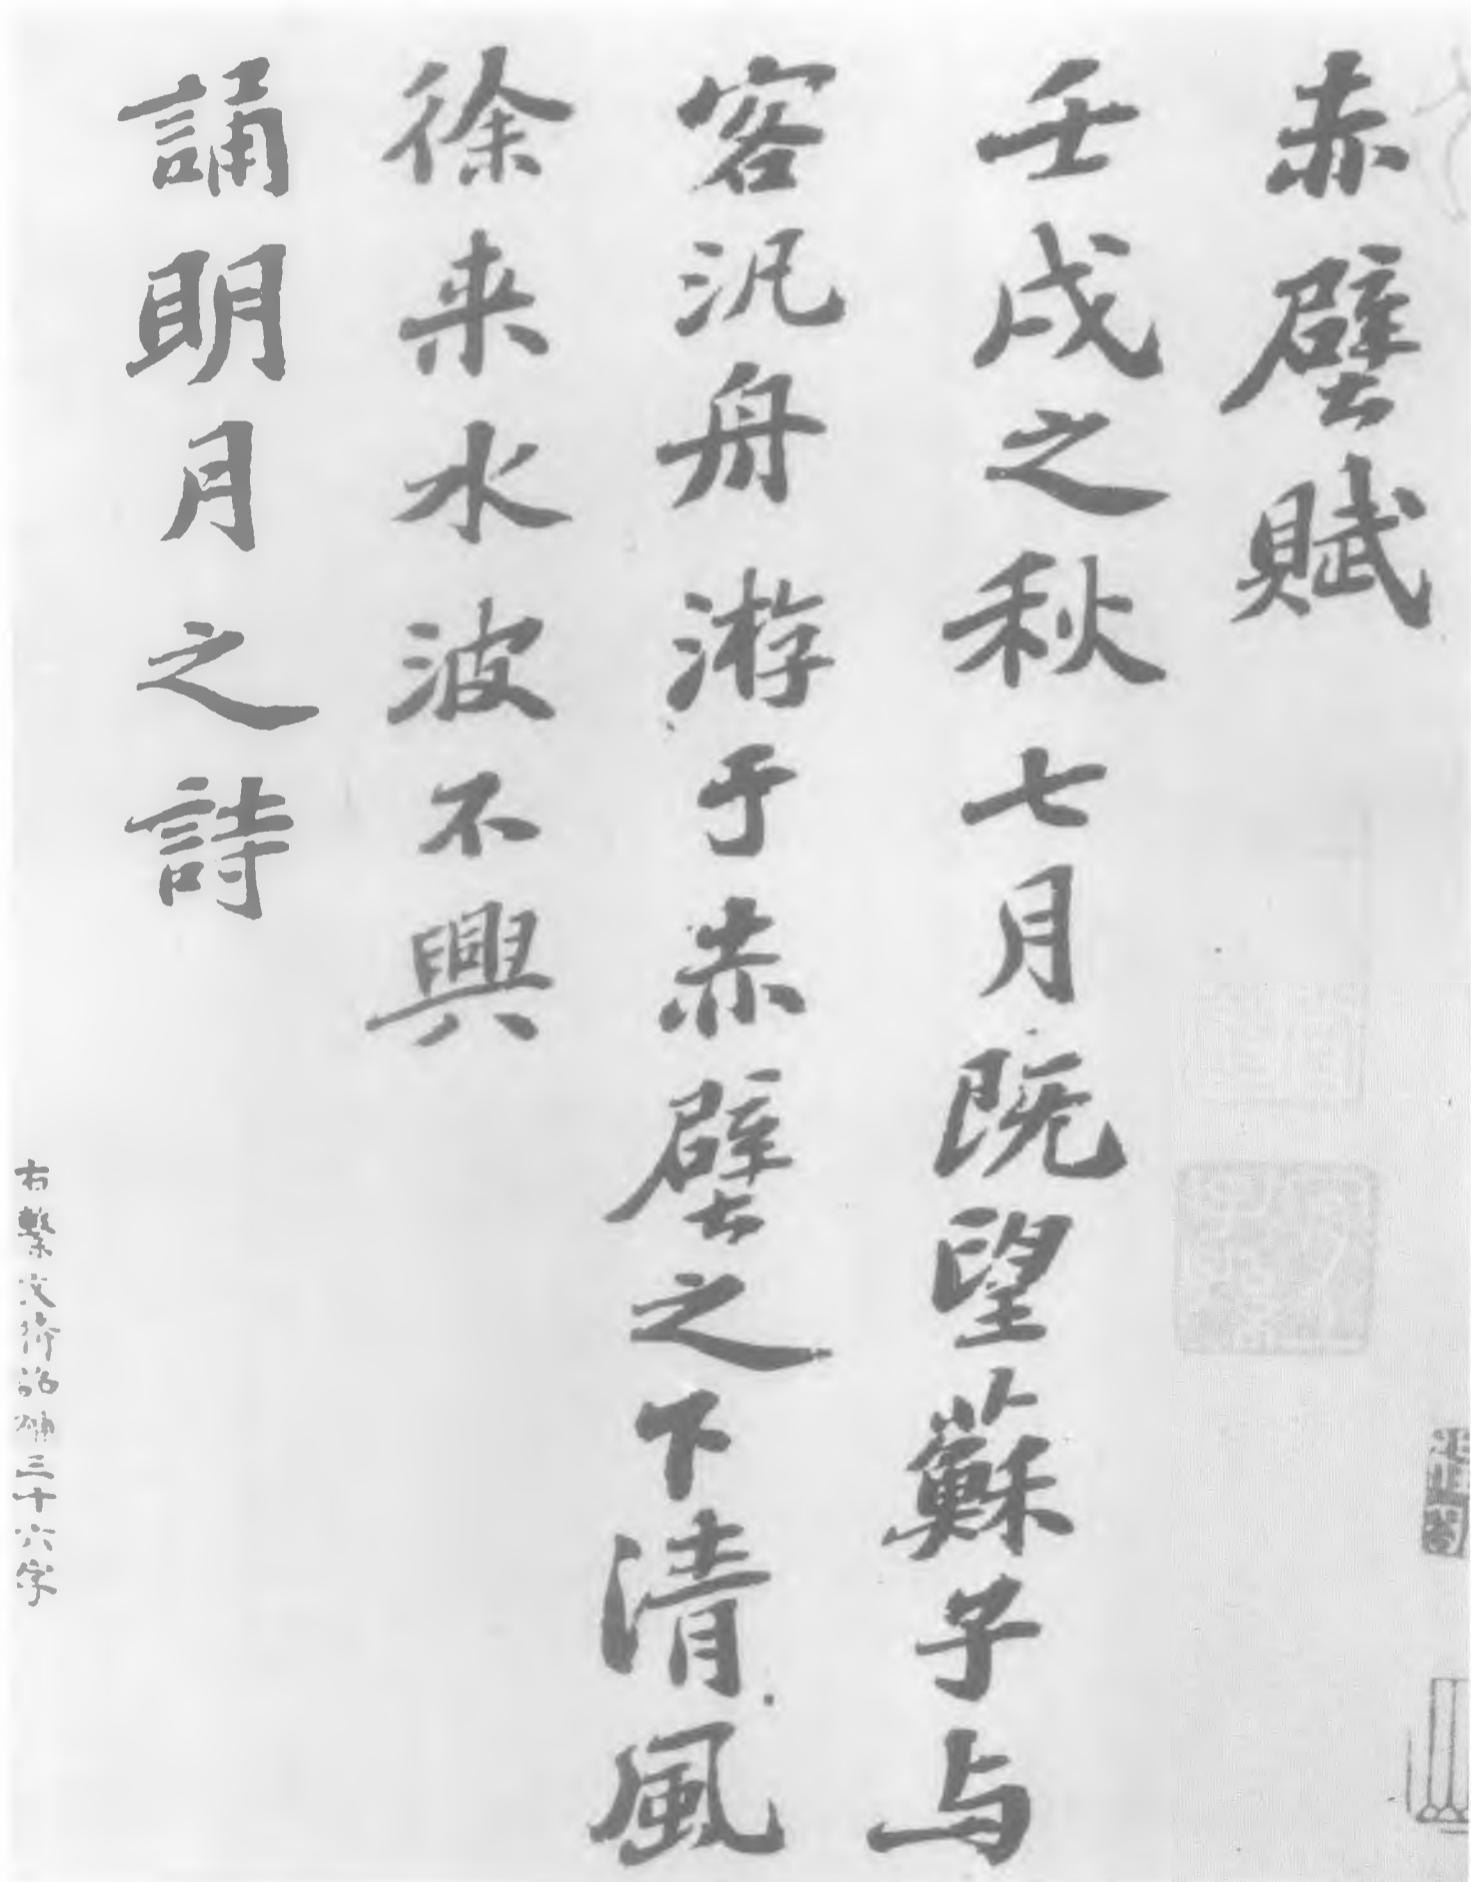 赤壁賦
壬戌之秋七月既望蘇子与
客汎舟游于赤壁之下清風
徐来水波不興
誦明月之詩
右繫文待詔補三十六字